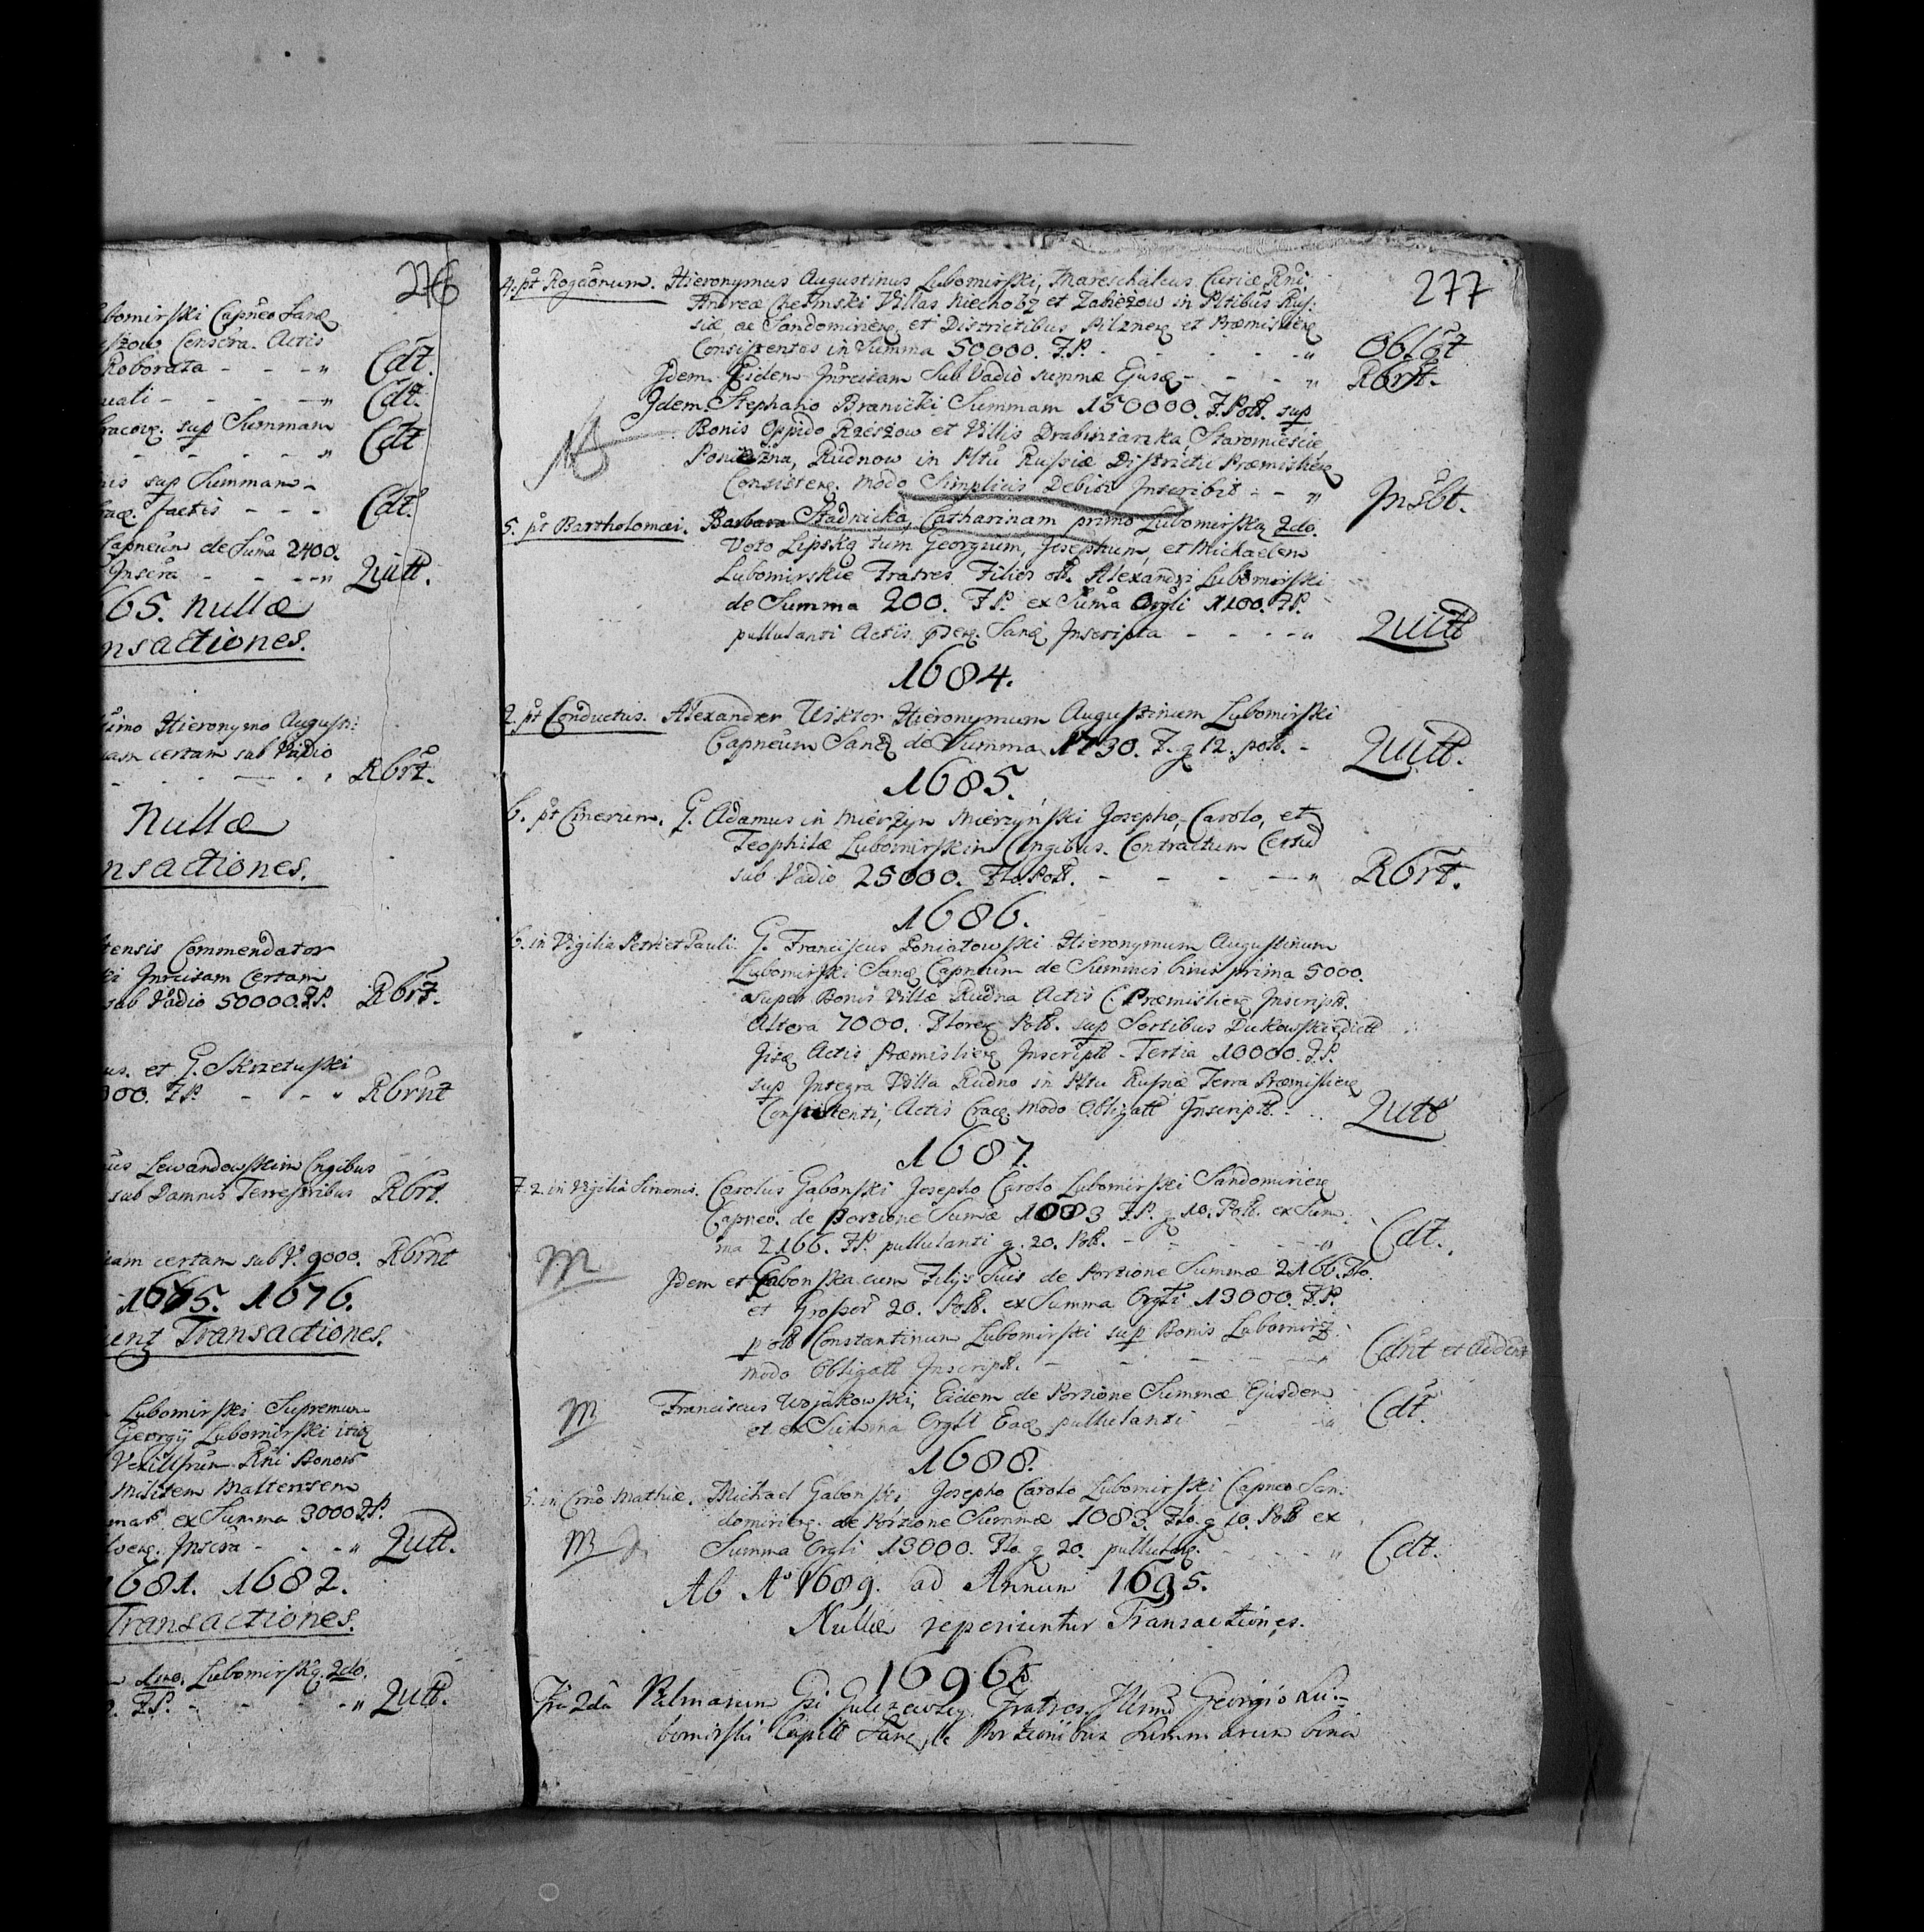 276
bomirski Capneo Sanq
szow Conscra. Actis
Roborata - - - " Cdt.
uali - - - - " Cdt.
racovq. sup Summam Cdt
nis sup Summam
racq. factis - - - Cdt.
Capneum de Suma 2400.
Inscra - - - " Quitt.
65. Nullæ
nsactiones.
simo Hieronymo Augusti:
uam certam sub Vadio
Rbrt.
Nullæ
nsactiones.
tensis Commendator
ki Jnrcisam Certam
sub Vadio 50000. F.P. Rbrt.
us. et G. Skrzetuski
000. F.P. - - " Rbrnt
us Lewandowskim Cngibus
sub Damnis Terrestribus Rbrt.
sam certam sub V. 9000. Rbrnt
1675. 1676.
uent Transactiones.
Lubomirski Supremum
Georgij Lubomirski itiq
Vexillfrum Rni Bonow
Militem Maltensem
ex Summa 3000 F.P.
Inscra - - - " Quitt.
1681. 1682.
Transactiones.
1mo. Lubomirskq. 2do.
F.P. - - - " Quitt.
277
4. pt Rogaonum. Hieronymus Augustinus Lubomirski, Mareschalcus Curiæ Rni,
Andreæ Chełmski Villas Niechobz et Zabieżow in Pltibus Rus:
siæ, ac Sandomirieq, et Districtibus Pilzneq et Præmislieq
Consistentes in Summa 50000. F.P. - - - - " Oblgt
Jdem Eidem Jnrcisam Sub Vadio summæ Ejusq - - - " Rbrt.
Jdem Stephano Branicki Summam 150000. F. Poll. sup
NB Bonis Oppido Rzészow et Villis Drabinianka, Staromieście
Pobitna, Rudnow in Pltu Russiæ Districtu Præmislieq
Consisteq. modo Simplicis Debiti Inscribit - - " Insbt.
5. pt Bartholomæi. Barbara Stadnicka, Catharinam primo Lubomirskq 2do.
Voto Lipskq tum Georgium, Josephum, et Michaelem
Lubomirskie Fratres Filios olb. Alexandri Lubomirski
de Summa 200. F.P. ex Suma Orgli 1100. F.P.
pullulanti Actis pdeq. Sanq Jnscripta - - - - " Quitt
1684.
2. pt Conductus. Alexander Wiktor Hieronymum Augustinum Lubomirski
Capneum Sanq de Summa 1730. F. g 12. poll. - Quitt.
1685.
6. pt Cinerum. G. Adamus in Mierżyn Mierzyński Josepho, Carolo, et
Teophilæ Lubomirskim Cngibus. Contractum Certu
sub Vadio 25000. Flo. Poll. - - - - " Rbrt.
1686.
6. in Vigilia Petri et Pauli. G. Franciscus Poniatowski Hieronymum Augustinum
Lubomirski Sanq Capneum de Summis trius prima 5000.
super Bonis Villæ Rudna Actis C. Præmislieq Inscript.
Altera 7000. Floreq Poll. sup Sortibus Dukowskie dictt
Actis Præmislieq Inscriptt - Tertia 10000. F.P.
sup Jntegra Villa Rudno in Pltu Russiæ Terra Præmislieq
Consistenti, Actis Cracq. modo Obligatt Jnscriptt. - .. Quitt
1687.
F. 2. in Vigilia Simonis. Carolus Gabonski Josepho Carolo Lubomirski Sandomirieq
Capneo. de Portione Sumæ 1083 F.P. g 10. Poll. ex Sum:
ma 2166. F.P. pullulanti g. 20. Poll. - - - - " Cdt.
M Jdem et Gabonska cum Filijs Suis de Portione Summæ 2166. Flo.
et Grosser 20. Poll. ex Summa Orgli 13000. F.P.
p olb Constantinum Lubomirski sup Bonis Lubomirz
modo Obligatt Jnscriptt. - - - - " Cdnt et
M Franciscus Wojakowski, Eidem de Portione Summæ Ejusdem
et ex Summa Orgli Eaq pullulanti - - " Cdt.
1688.
5. in Crno Mathiæ. Michael Gabonski Josepho Carolo Lubomirski Capneo San:
domirieq. de Portione Summæ 1083. Flo. g 10. Poll ex
M Summa Orgli 13000. Flo. g 20. pullulaq. - - " Cdt.
Ab Aº 1689. ad Annum 1695.
Nullæ reperiuntur Transactiones.
1696to
Fria 2da Palmarum Gsi Fratres Illmo Georgio Lu:
bomirski Capitt Sanq, de Portionibus Summarum bina